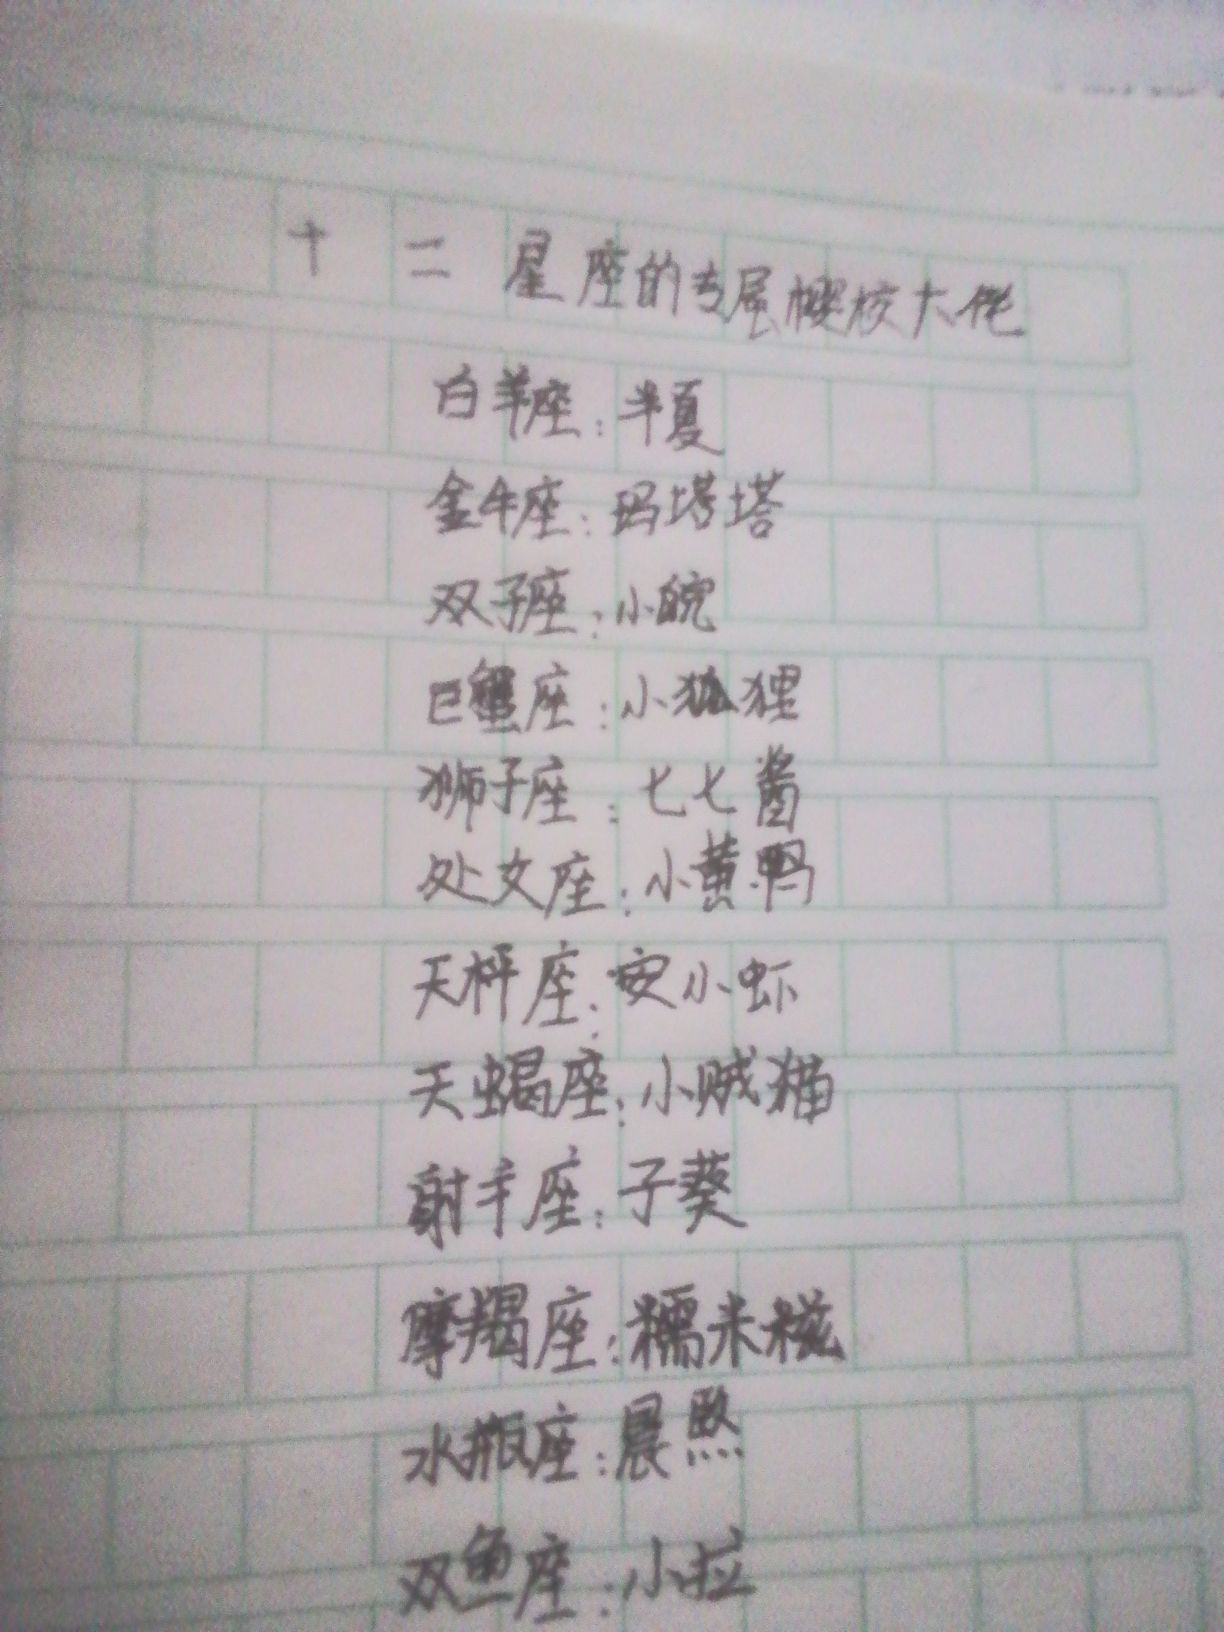 十二星座的专属樱校大佬
白羊座：半夏
金牛座：玛塔塔
双子座：小皖
巨蟹座：小狐狸
狮子座：七七酱
处女座：小黄鸭
天枰座：安小虾
天蝎座：小贼猫
射手座：子葵
摩羯座：糯米糍
水瓶座：晨煦
双鱼座：小拉